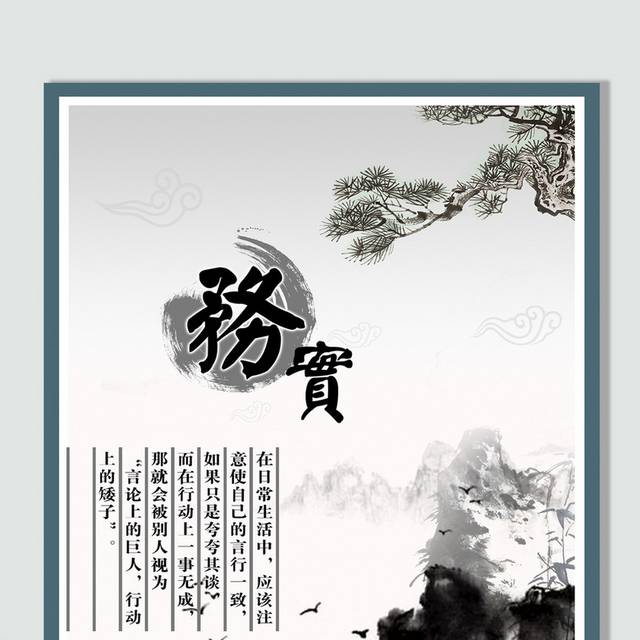 務實
在日常生活中，应该注
意使自己的言行一致，
如果只是夸夸其谈，
而在行动上一事无成，
那就会被别人视为
“言论上的巨人，行动
上的矮子”。